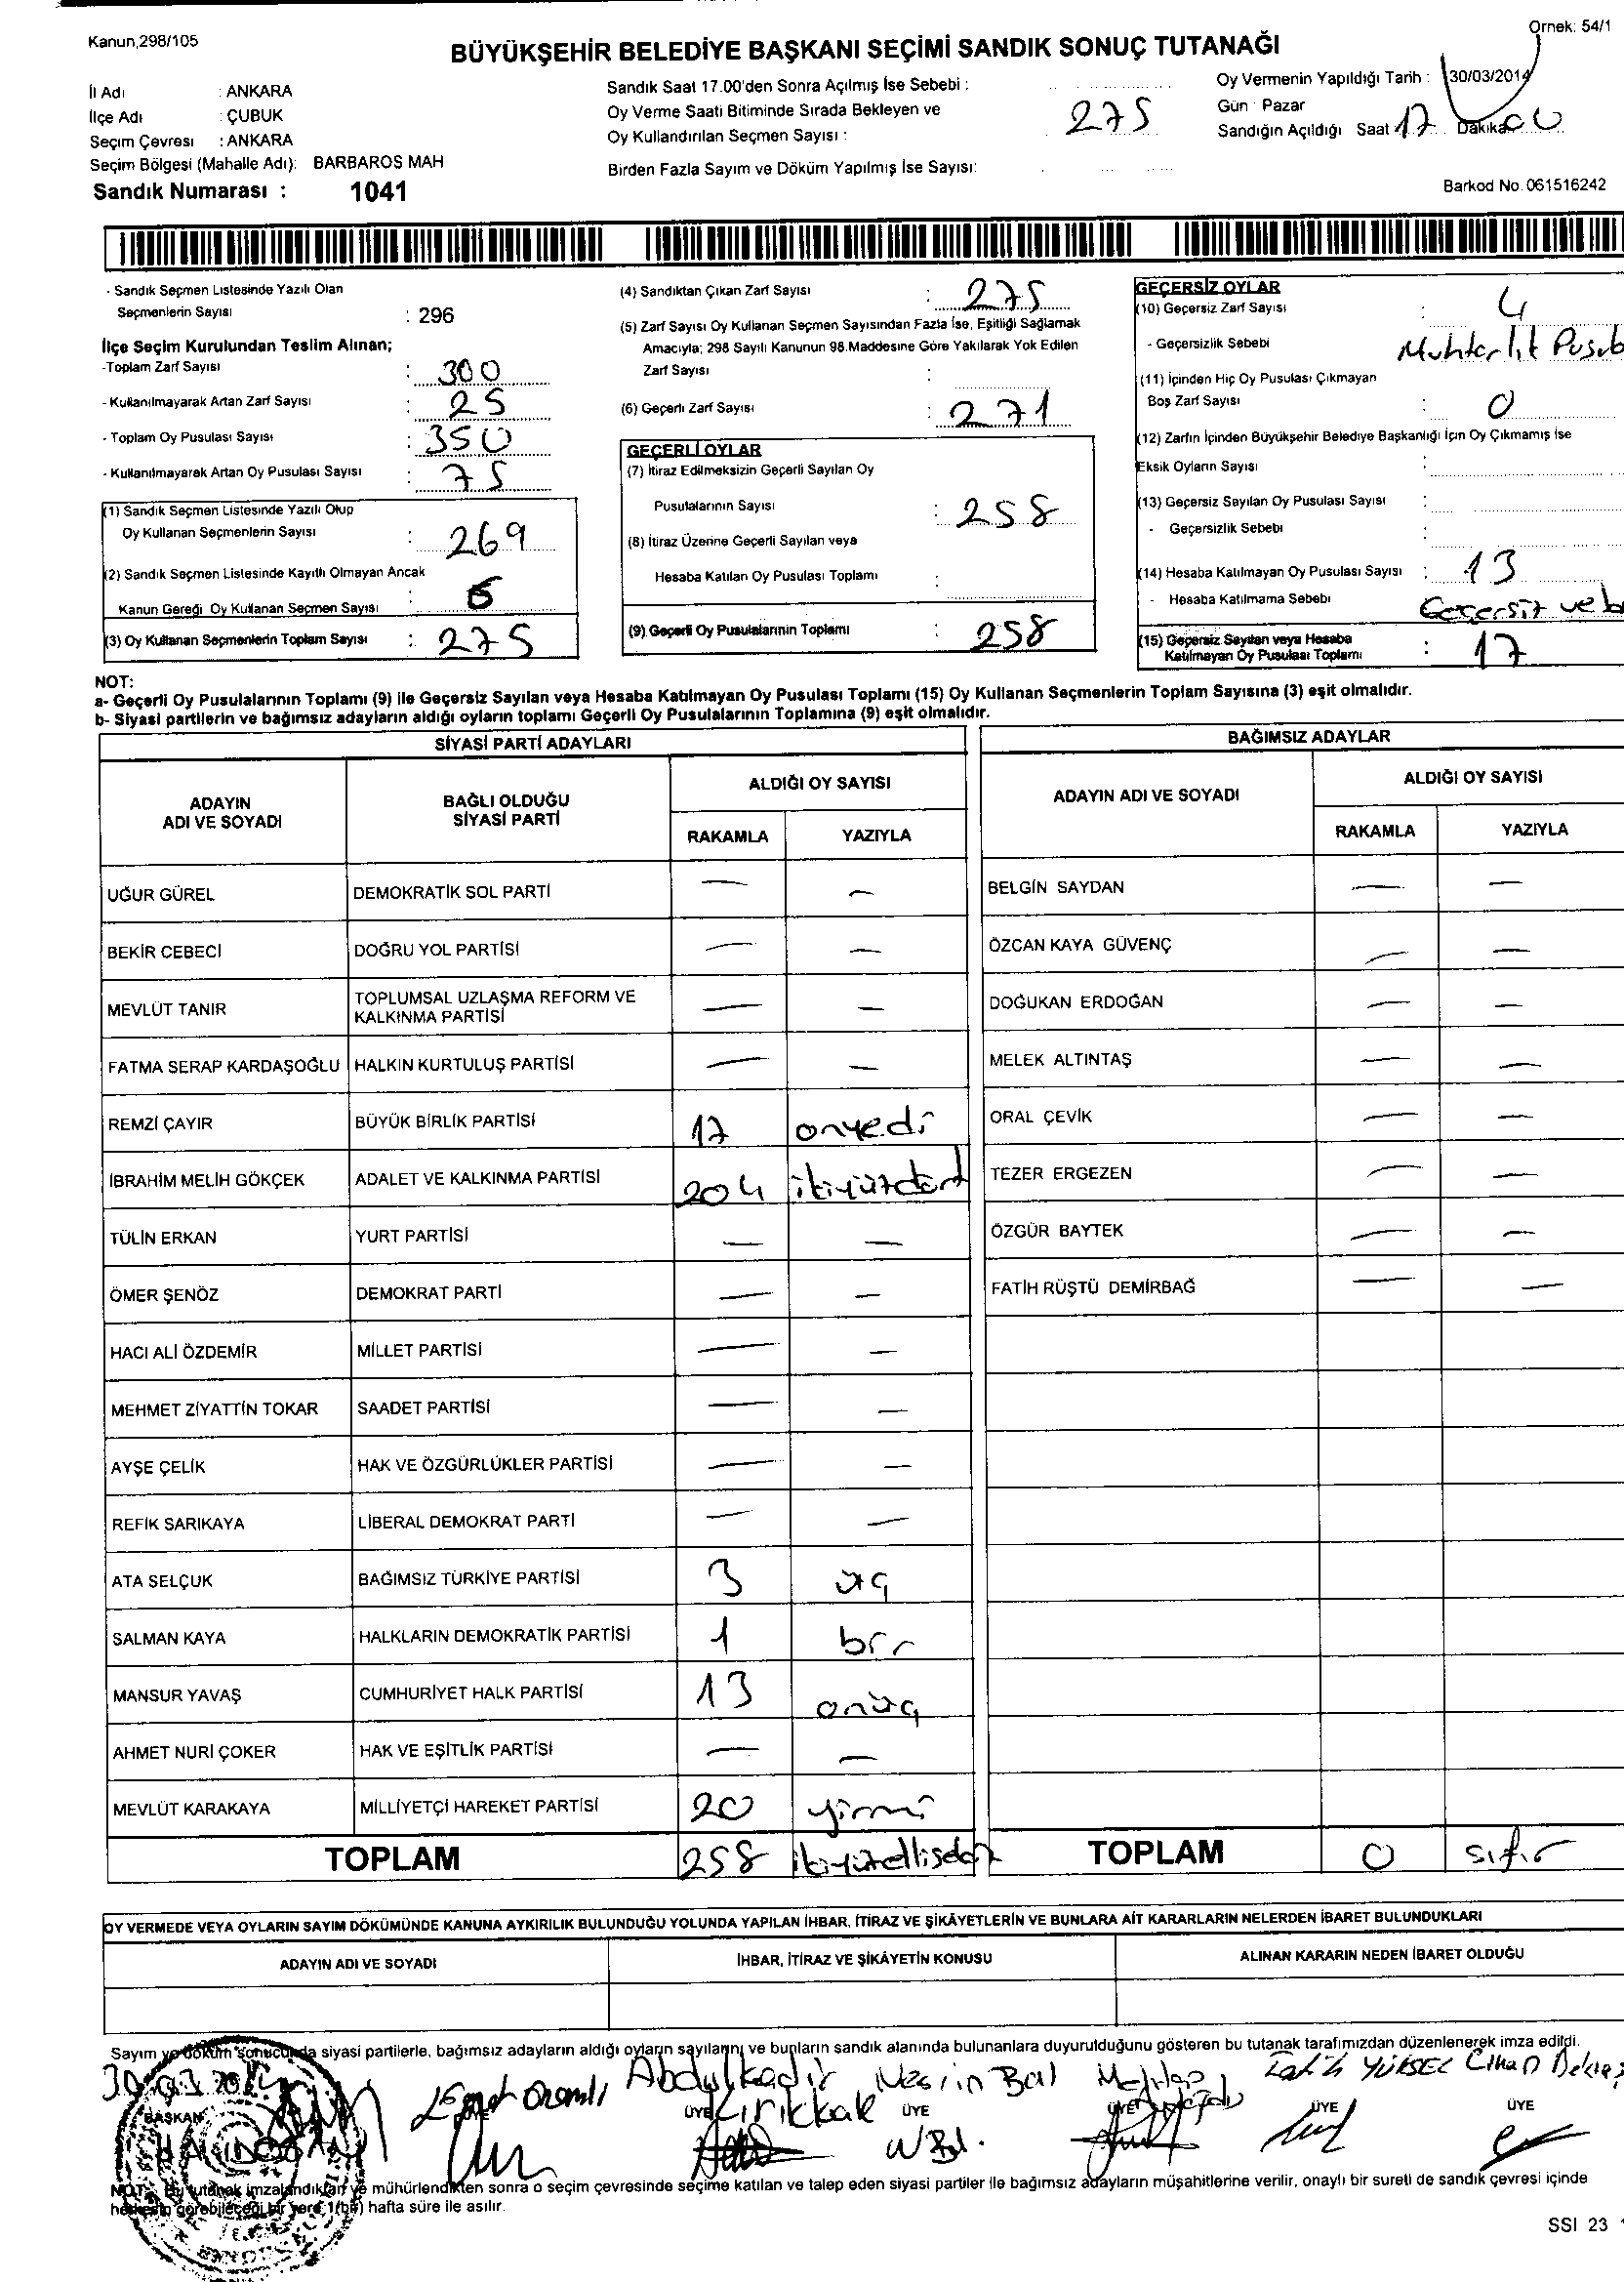 Kanun,298/105
Örnek: 54/1
BÜYÜKŞEHİR BELEDİYE BAŞKANI SEÇİMİ SANDIK SONUÇ TUTANAĞI
İl Adı : ANKARA
İlçe Adı : ÇUBUK
Seçim Çevresi : ANKARA
Seçim Bölgesi (Mahalle Adı): BARBAROS MAH
Sandık Numarası : 1041
Sandık Saat 17.00'den Sonra Açılmış İse Sebebi :
Oy Verme Saati Bitiminde Sırada Bekleyen ve
Oy Kullandırılan Seçmen Sayısı : 275
Birden Fazla Sayım ve Döküm Yapılmış İse Sayısı:
Oy Vermenin Yapıldığı Tarih : 30/03/2014
Gün : Pazar
Sandığın Açıldığı Saat 17 Dakika 00
Barkod No. 061516242
- Sandık Seçmen Listesinde Yazılı Olan
Seçmenlerin Sayısı : 296
İlçe Seçim Kurulundan Teslim Alınan;
-Toplam Zarf Sayısı : 300
- Kullanılmayarak Artan Zarf Sayısı : 25
- Toplam Oy Pusulası Sayısı : 350
- Kullanılmayarak Artan Oy Pusulası Sayısı : 75
(1) Sandık Seçmen Listesinde Yazılı Olup
Oy Kullanan Seçmenlerin Sayısı : 269
(2) Sandık Seçmen Listesinde Kayıtlı Olmayan Ancak
Kanun Gereği Oy Kullanan Seçmen Sayısı : 6
(3) Oy Kullanan Seçmenlerin Toplam Sayısı : 275
(4) Sandıktan Çıkan Zarf Sayısı : 275
(5) Zarf Sayısı Oy Kullanan Seçmen Sayısından Fazla İse, Eşitliği Sağlamak
Amacıyla; 298 Sayılı Kanunun 98.Maddesine Göre Yakılarak Yok Edilen
Zarf Sayısı :
(6) Geçerli Zarf Sayısı : 271
GEÇERLİ OYLAR
(7) İtiraz Edilmeksizin Geçerli Sayılan Oy
Pusulalarının Sayısı : 258
(8) İtiraz Üzerine Geçerli Sayılan veya
Hesaba Katılan Oy Pusulası Toplamı :
(9) Geçerli Oy Pusulalarının Toplamı : 258
GEÇERSİZ OYLAR
(10) Geçersiz Zarf Sayısı : 4
- Geçersizlik Sebebi Muhtarlık Pusub
(11) İçinden Hiç Oy Pusulası Çıkmayan
Boş Zarf Sayısı : 0
(12) Zarfın İçinden Büyükşehir Belediye Başkanlığı İçin Oy Çıkmamış İse
Eksik Oyların Sayısı :
(13) Geçersiz Sayılan Oy Pusulası Sayısı :
- Geçersizlik Sebebi :
(14) Hesaba Katılmayan Oy Pusulası Sayısı : 13
- Hesaba Katılmama Sebebi Geçersiz ve b
(15) Geçersiz Sayılan veya Hesaba
Katılmayan Oy Pusulası Toplamı : 17
NOT:
a- Geçerli Oy Pusulalarının Toplamı (9) ile Geçersiz Sayılan veya Hesaba Katılmayan Oy Pusulası Toplamı (15) Oy Kullanan Seçmenlerin Toplam Sayısına (3) eşit olmalıdır.
b- Siyasi partilerin ve bağımsız adayların aldığı oyların toplamı Geçerli Oy Pusulalarının Toplamına (9) eşit olmalıdır.
SİYASİ PARTİ ADAYLARI
ADAYIN ADI VE SOYADI BAĞLI OLDUĞU SİYASİ PARTİ ALDIĞI OY SAYISI
RAKAMLA YAZIYLA
UĞUR GÜREL DEMOKRATİK SOL PARTİ — —
BEKİR CEBECİ DOĞRU YOL PARTİSİ — —
MEVLÜT TANIR TOPLUMSAL UZLAŞMA REFORM VE KALKINMA PARTİSİ — —
FATMA SERAP KARDAŞOĞLU HALKIN KURTULUŞ PARTİSİ — —
REMZİ ÇAYIR BÜYÜK BİRLİK PARTİSİ 17 onyedi
İBRAHİM MELİH GÖKÇEK ADALET VE KALKINMA PARTİSİ 204 ikiyüzdört
TÜLİN ERKAN YURT PARTİSİ — —
ÖMER ŞENÖZ DEMOKRAT PARTİ — —
HACI ALİ ÖZDEMİR MİLLET PARTİSİ — —
MEHMET ZİYATTİN TOKAR SAADET PARTİSİ — —
AYŞE ÇELİK HAK VE ÖZGÜRLÜKLER PARTİSİ — —
REFİK SARIKAYA LİBERAL DEMOKRAT PARTİ — —
ATA SELÇUK BAĞIMSIZ TÜRKİYE PARTİSİ 3 üç
SALMAN KAYA HALKLARIN DEMOKRATİK PARTİSİ 1 bir
MANSUR YAVAŞ CUMHURİYET HALK PARTİSİ 13 onüç
AHMET NURİ ÇOKER HAK VE EŞİTLİK PARTİSİ — —
MEVLÜT KARAKAYA MİLLİYETÇİ HAREKET PARTİSİ 20 yirmi
TOPLAM 258 ikiyüzellisekiz
BAĞIMSIZ ADAYLAR
ADAYIN ADI VE SOYADI ALDIĞI OY SAYISI
RAKAMLA YAZIYLA
BELGİN SAYDAN — —
ÖZCAN KAYA GÜVENÇ — —
DOĞUKAN ERDOĞAN — —
MELEK ALTINTAŞ — —
ORAL ÇEVİK — —
TEZER ERGEZEN — —
ÖZGÜR BAYTEK — —
FATİH RÜŞTÜ DEMİRBAĞ — —
TOPLAM 0 sıfır
OY VERMEDE VEYA OYLARIN SAYIM DÖKÜMÜNDE KANUNA AYKIRILIK BULUNDUĞU YOLUNDA YAPILAN İHBAR, İTİRAZ VE ŞİKÂYETLERİN VE BUNLARA AİT KARARLARIN NELERDEN İBARET BULUNDUKLARI
ADAYIN ADI VE SOYADI İHBAR, İTİRAZ VE ŞİKÂYETİN KONUSU ALINAN KARARIN NEDEN İBARET OLDUĞU
Sayım ve döküm sonucunda siyasi partilerle, bağımsız adayların aldığı oyların sayılarını ve bunların sandık alanında bulunanlara duyurulduğunu gösteren bu tutanak tarafımızdan düzenlenerek imza edildi.
30.03.2014 Abdulkadir Nesrin Bal Fatih YÜKSEL Cihan
BAŞKAN ÜYE Kırıkkak ÜYE ÜYE ÜYE ÜYE
N Bal.
NOT: Bu tutanak imzalandıktan ve mühürlendikten sonra o seçim çevresinde seçime katılan ve talep eden siyasi partiler ile bağımsız adayların müşahitlerine verilir, onaylı bir sureti de sandık çevresi içinde
herkesin görebileceği bir yere 1(bir) hafta süre ile asılır.
SSI 23